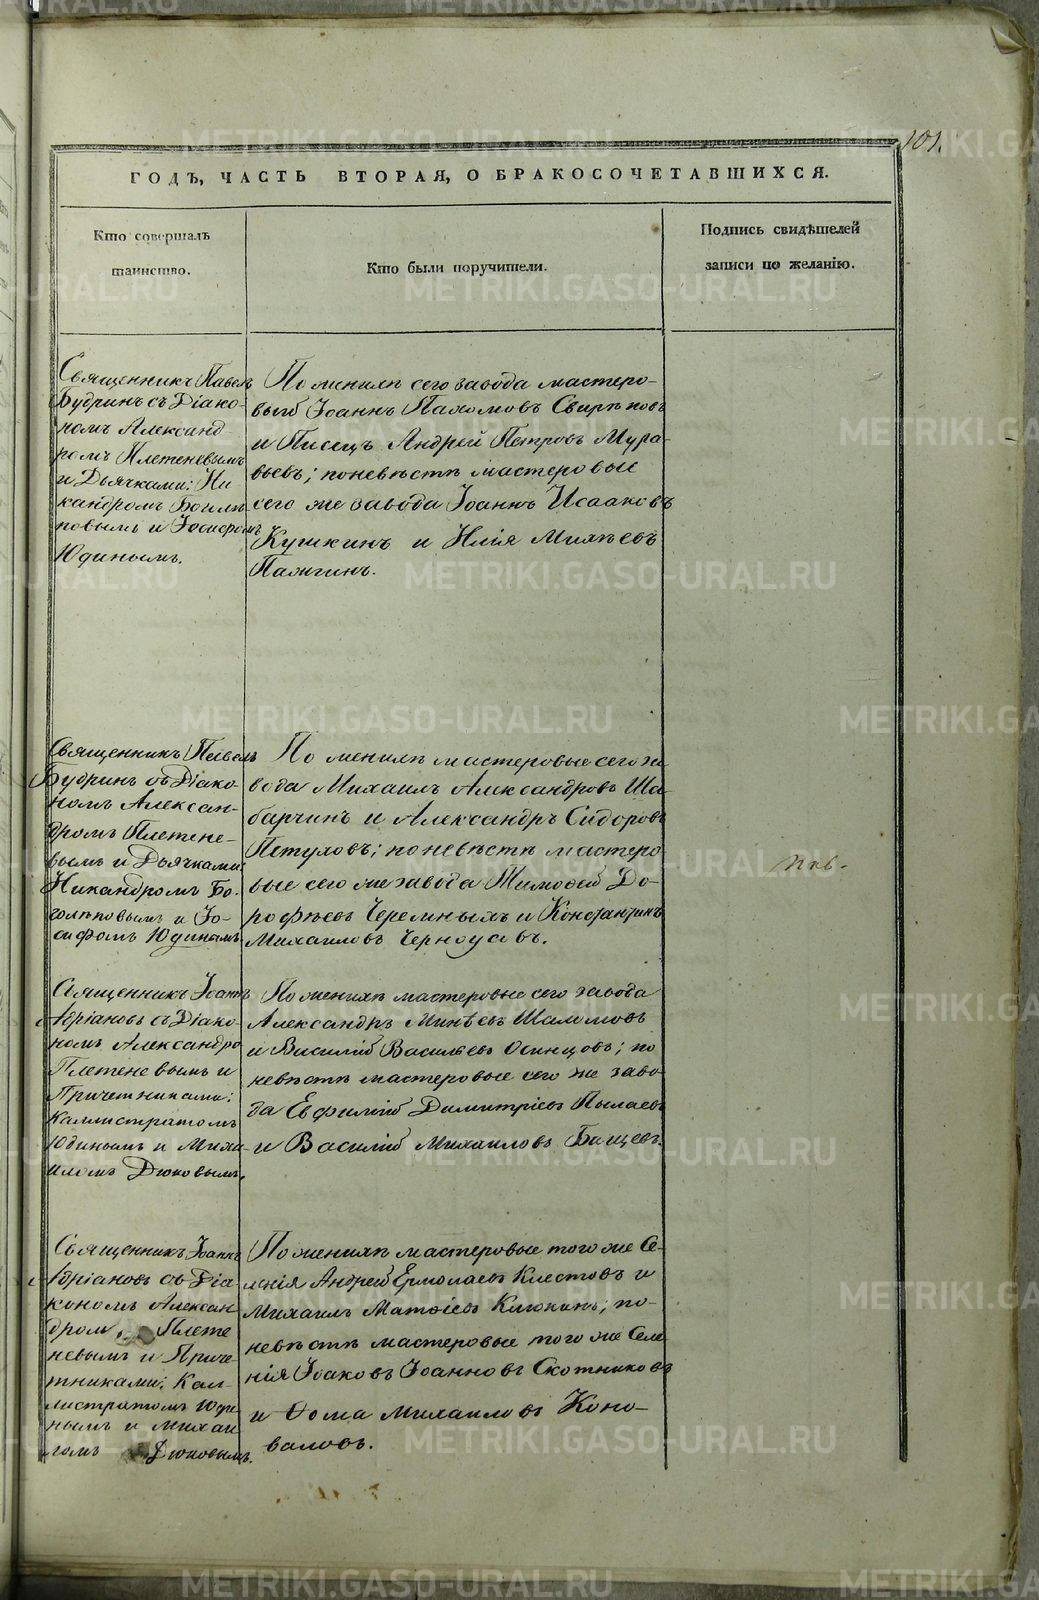 101.
ГОДЪ, ЧАСТЬ ВТОРАЯ, О БРАКОСОЧЕТАВШИХСЯ.
Кто совершалъ
таинство.
Кто были поручители.
Подпись свидѣтелей
записи по желанію.
Священникъ Павелъ
Будринъ съ Діако-
номъ Александ-
ромъ Плетеневымъ
и Дьячками: Ни
кандромъ Боголѣ
повымъ и Іосифомъ
Юдинымъ.
По женихѣ сего завода мастеро-
вый Іоаннъ Пахомовъ Свирѣповъ
и Писецъ Андрей Петровъ Мура-
вьевъ; поневѣстѣ мастеровые
сего же завода Іоаннъ Исааковъ
Кушкинъ и Илія Михѣевъ
Палкгинъ.
Священникъ Павелъ
Будринъ съ Діако-
номъ Алексан-
дромъ Плетене-
вымъ и Дьячками:
Никандромъ Бо-
голѣповымъ и Іо-
сифомъ Юдинымъ
По женихѣ мастеровые сего за-
вода Михаилъ Александровъ Ша-
барчинъ и Александръ Сидоровъ
Петуховъ; поневѣстѣ мастеро
вые сего же завода Тимофей До-
рофѣевъ Черемныхъ и Константинъ
Михаиловъ Черноусовъ.
Священникъ Іоаннъ
Адріановъ съ Діако-
номъ Александро
Плетеневымъ и
Причетниками:
Каллистратомъ
Юдинымъ и Миха-
иломъ Дюковымъ.
По женихѣ мастеровые сего завода
Александръ Михѣевъ Шаламовъ
и Василій Васильевъ Осинцовъ; по
невѣстѣ мастеровые сего же заво-
да Евфимій Димитріевъ Пылаевъ
и Василій Михаиловъ Бащевъ.
Священникъ Іоаннъ
Адріановъ съ Діа-
кономъ Алексан
дром. Плете
невымъ и Приче-
тниками: Кал-
листратомъ Юди
нымъ и Михаи
ломъ Дюковымъ.
По женихѣ мастеровые того же Се-
ленія Андрей Ермолаевъ Клестовъ и
Михаилъ Матѳіевъ Клюкинъ; по-
невѣстѣ мастеровые того же Селе-
нія Іоаковъ Іоанновъ Скотниковъ
и Ѳома Михаиловъ Коно-
валовъ.
METRIKI.GASO-URAL.RU